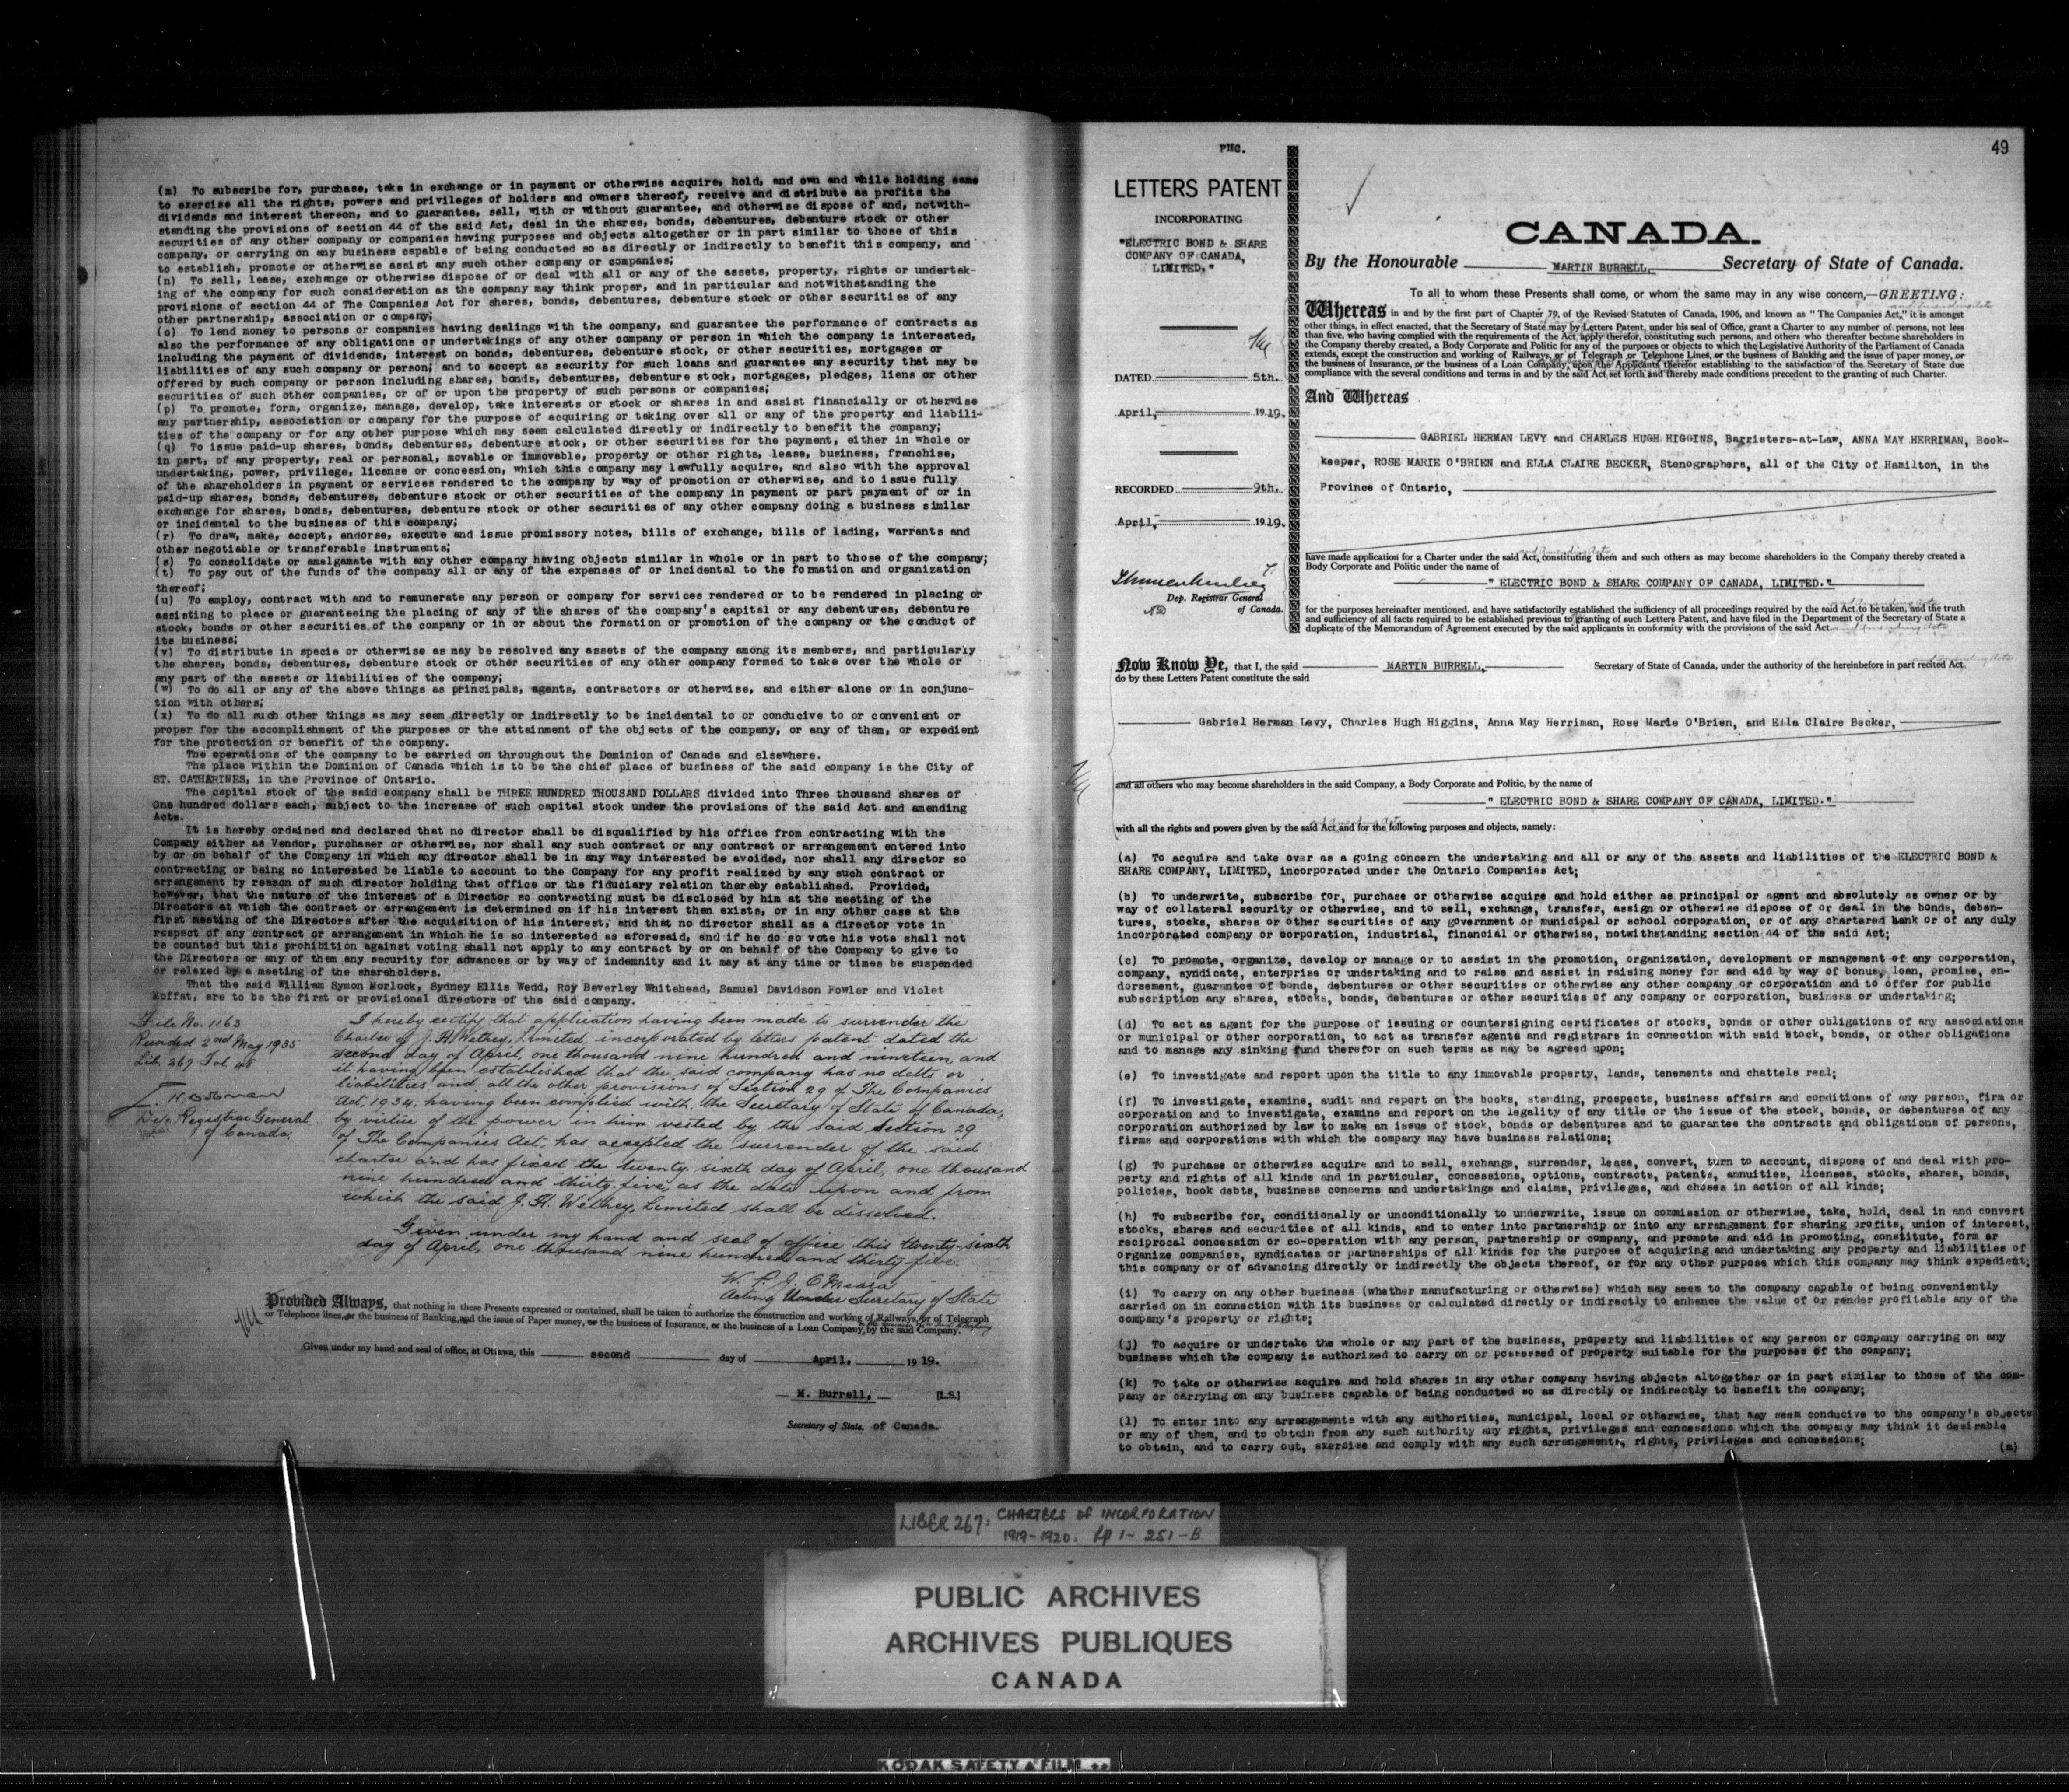 (m) To subscribe for, purchase, take in exchange or in payment or otherwise acquire, hold, and own and while holding same
to exercise all the rights, powers and privileges of holders and owners thereof, receive and distribute as profits the
dividends and interest thereon, and to guarantee, sell, with or without guarantee, and otherwise dispose of and, notwith-
standing the provisions of section 44 of the said Act, deal in the shares, bonds, debentures, debenture stock or other
securities of any other company or companies having purposes and objects altogether or in part similar to those of this
company, or carrying on any business capable of being conducted so as directly or indirectly to benefit this company, and
to establish, promote or otherwise assist any such other company or companies;
(n) To sell, lease, exchange or otherwise dispose of or deal with all or any of the assets, property, rights or undertak-
ing of the company for such consideration as the company may think proper, and in particular and notwithstanding the
provisions of section 44 of The Companies Act for shares, bonds, debentures, debenture stock or other securities of any
other partnership, association or company;
(o) To lend money to persons or companies having dealings with the company, and guarantee the performance of contracts as
also the performance of any obligations or undertakings of any other company or person in which the company is interested,
including the payment of dividends, interest on bonds, debentures, debenture stock, or other securities, mortgages or
liabilities of any such company or person; and to accept as security for such loans and guarantee any security that may be
offered by such company or person including shares, bonds, debentures, debenture stock, mortgages, pledges, liens or other
securities of such other companies, or of or upon the property of such persons or companies;
(p) To promote, form, organize, manage, develop, take interests or stock or shares in and assist financially or otherwise
any partnership, association or company for the purpose of acquiring or taking over all or any of the property and liabili-
ties of the company or for any other purpose which may seem calculated directly or indirectly to benefit the company;
(q) To issue paid-up shares, bonds, debentures, debenture stock, or other securities for the payment, either in whole or
in part, of any property, real or personal, movable or immovable, property or other rights, lease, business, franchise,
undertaking, power, privilege, license or concession, which this company may lawfully acquire, and also with the approval
of the shareholders in payment or services rendered to the company by way of promotion or otherwise, and to issue fully
paid-up shares, bonds, debentures, debenture stock or other securities of the company in payment or part payment of or in
exchange for shares, bonds, debentures, debenture stock or other securities of any other company doing a business similar
or incidental to the business of this company;
(r) To draw, make, accept, endorse, execute and issue promissory notes, bills of exchange, bills of lading, warrants and
other negotiable or transferable instruments;
(s) To consolidate or amalgamate with any other company having objects similar in whole or in part to those of the company;
(t) To pay out of the funds of the company all or any of the expenses of or incidental to the formation and organization
thereof;
(u) To employ, contract with and to remunerate any person or company for services rendered or to be rendered in placing or
assisting to place or guaranteeing the placing of any of the shares of the company's capital or any debentures, debenture
stock, bonds or other securities of the company or in or about the formation or promotion of the company or the conduct of
its business;
(v) To distribute in specie or otherwise as may be resolved any assets of the company among its members, and particularly
the shares, bonds, debentures, debenture stock or other securities of any other company formed to take over the whole or
any part of the assets or liabilities of the company;
(w) To do all or any of the above things as principals, agents, contractors or otherwise, and either alone or in conjunc-
tion with others;
(x) To do all such other things as may seem directly or indirectly to be incidental to or conducive to or convenient or
proper for the accomplishment of the purposes or the attainment of the objects of the company, or any of them, or expedient
for the protection or benefit of the company.
The operations of the company to be carried on throughout the Dominion of Canada and elsewhere.
The place within the Dominion of Canada which is to be the chief place of business of the said company is the City of
ST. CATHARINES, in the Province of Ontario.
The capital stock of the said company shall be THREE HUNDRED THOUSAND DOLLARS divided into Three thousand shares of
One hundred dollars each, subject to the increase of such capital stock under the provisions of the said Act and amending
Acts.
It is hereby ordained and declared that no director shall be disqualified by his office from contracting with the
Company either as Vendor, purchaser or otherwise, nor shall any such contract or any contract or arrangement entered into
by or on behalf of the Company in which any director shall be in any way interested be avoided, nor shall any director so
contracting or being so interested be liable to account to the Company for any profit realized by any such contract or
arrangement by reason of such director holding that office or the fiduciary relation thereby established. Provided,
however, that the nature of the interest of a Director so contracting must be disclosed by him at the meeting of the
Directors at which the contract or arrangement is determined on if his interest then exists, or in any other case at the
first meeting of the Directors after the acquisition of his interest, and that no director shall as a director vote in
respect of any contract or arrangement in which he is so interested as aforesaid, and if he do so vote his vote shall not
be counted but this prohibition against voting shall not apply to any contract by or on behalf of the Company to give to
the Directors or any of them any security for advances or by way of indemnity and it may at any time or times be suspended
or relaxed by a meeting of the shareholders.
That the said William Symon Morlock, Sydney Ellis Wedd, Roy Beverley Whitehead, Samuel Davidson Fowler and Violet
Moffat, are to be the first or provisional directors of the said company.
File No. 1163
Recorded 2nd May 1935
Lib. 267 Fol 48
Dep. Registrar General
of Canada.
I hereby certify that application having been made to surrender the
Charter of J. H. Wethey, Limited, incorporated by letters patent dated the
second day of April, one thousand nine hundred and nineteen, and
it having been established that the said company has no debts or
liabilities and, all the other provisions of Section 29 of The Companies
Act, 1934, having been complied with, the Secretary of State of Canada,
by virtue of the power in him vested by the said Section 29
of The Companies Act, has accepted the surrender of the said
charter and has fixed the twenty sixth day of April, one thousand
nine hundred and thirty-five, as the date upon and from
which the said J. H. Wethey, Limited shall be dissolved.
Given under my hand and seal of office this twenty-sixth
day of April, one thousand nine hundred and thirty-five.
W. P. J. O'Meara
Acting Under Secretary of State
Provided Always, that nothing in these Presents expressed or contained, shall be taken to authorize the construction and working of Railways, or of Telegraph
or Telephone lines, or the business of Banking, and the issue of Paper money, or the business of Insurance, or the business of a Loan Company, by the said Company.
Given under my hand and seal of office, at Ottawa, this second day of April, 1919.
M. Burrell, [L.S.]
Secretary of State. of Canada.
PMC.
LETTERS PATENT
INCORPORATING
"ELECTRIC BOND & SHARE
COMPANY OF CANADA,
LIMITED,"
DATED 5th.
April, 1919.
RECORDED 9th.
April, 1919.
Dep. Registrar General
of Canada.
49
CANADA.
By the Honourable MARTIN BURRELL, Secretary of State of Canada.
To all to whom these Presents shall come, or whom the same may in any wise concern,—GREETING:
and Amending Acts
Whereas in and by the first part of Chapter 79, of the Revised Statutes of Canada, 1906, and known as "The Companies Act," it is amongst
other things, in effect enacted, that the Secretary of State may by Letters Patent, under his seal of Office, grant a Charter to any number of persons, not less
than five, who having complied with the requirements of the Act, apply therefor, constituting such persons, and others who thereafter become shareholders in
the Company thereby created, a Body Corporate and Politic for any of the purposes or objects to which the Legislative Authority of the Parliament of Canada
extends, except the construction and working of Railways, or of Telegraph or Telephone Lines, or the business of Banking and the issue of paper money, or
the business of Insurance, or the business of a Loan Company, upon the Applicants therefor establishing to the satisfaction of the Secretary of State due
compliance with the several conditions and terms in and by the said Act set forth and thereby made conditions precedent to the granting of such Charter.
And Whereas
GABRIEL HERMAN LEVY and CHARLES HUGH HIGGINS, Barristers-at-Law, ANNA MAY HERRIMAN, Book-
keeper, ROSE MARIE O'BRIEN and ELLA CLAIRE BECKER, Stenographers, all of the City of Hamilton, in the
Province of Ontario,
and Amending Acts
have made application for a Charter under the said Act, constituting them and such others as may become shareholders in the Company thereby created a
Body Corporate and Politic under the name of
" ELECTRIC BOND & SHARE COMPANY OF CANADA, LIMITED."
and Amending Acts
for the purposes hereinafter mentioned, and have satisfactorily established the sufficiency of all proceedings required by the said Act to be taken, and the truth
and sufficiency of all facts required to be established previous to granting of such Letters Patent, and have filed in the Department of the Secretary of State a
duplicate of the Memorandum of Agreement executed by the said applicants in conformity with the provisions of the said Act. and Amending Acts
and Amending Acts
Now Know Ye, that I, the said MARTIN BURRELL, Secretary of State of Canada, under the authority of the hereinbefore in part recited Act.
do by these Letters Patent constitute the said
Gabriel Herman Levy, Charles Hugh Higgins, Anna May Herriman, Rose Marie O'Brien, and Ella Claire Becker,
and all others who may become shareholders in the said Company, a Body Corporate and Politic, by the name of
" ELECTRIC BOND & SHARE COMPANY OF CANADA, LIMITED."
and Amending Acts
with all the rights and powers given by the said Act and for the following purposes and objects, namely:
(a) To acquire and take over as a going concern the undertaking and all or any of the assets and liabilities of the ELECTRIC BOND &
SHARE COMPANY, LIMITED, incorporated under the Ontario Companies Act;
(b) To underwrite, subscribe for, purchase or otherwise acquire and hold either as principal or agent and absolutely as owner or by
way of collateral security or otherwise, and to sell, exchange, transfer, assign or otherwise dispose of or deal in the bonds, deben-
tures, stocks, shares or other securities of any government or municipal or school corporation, or of any chartered bank or of any duly
incorporated company or corporation, industrial, financial or otherwise, notwithstanding section 44 of the said Act;
(c) To promote, organize, develop or manage or to assist in the promotion, organization, development or management of any corporation,
company, syndicate, enterprise or undertaking and to raise and assist in raising money for and aid by way of bonus, loan, promise, en-
dorsement, guarantee of bonds, debentures or other securities or otherwise any other company or corporation and to offer for public
subscription any shares, stocks, bonds, debentures or other securities of any company or corporation, business or undertaking;
(d) To act as agent for the purpose of issuing or countersigning certificates of stocks, bonds or other obligations of any associations
or municipal or other corporation, to act as transfer agents and registrars in connection with said stock, bonds, or other obligations
and to manage any sinking fund therefor on such terms as may be agreed upon;
(e) To investigate and report upon the title to any immovable property, lands, tenements and chattels real;
(f) To investigate, examine, audit and report on the books, standing, prospects, business affairs and conditions of any person, firm or
corporation and to investigate, examine and report on the legality of any title or the issue of the stock, bonds, or debentures of any
corporation authorized by law to make an issue of stock, bonds or debentures and to guarantee the contracts and obligations of persons,
firms and corporations with which the company may have business relations;
(g) To purchase or otherwise acquire and to sell, exchange, surrender, lease, convert, turn to account, dispose of and deal with pro-
perty and rights of all kinds and in particular, concessions, options, contracts, patents, annuities, licenses, stocks, shares, bonds,
policies, book debts, business concerns and undertakings and claims, privileges, and choses in action of all kinds;
(h) To subscribe for, conditionally or unconditionally to underwrite, issue on commission or otherwise, take, hold, deal in and convert
stocks, shares and securities of all kinds, and to enter into partnership or into any arrangement for sharing profits, union of interest,
reciprocal concession or co-operation with any person, partnership or company, and promote and aid in promoting, constitute, form or
organize companies, syndicates or partnerships of all kinds for the purpose of acquiring and undertaking any property and liabilities of
this company or of advancing directly or indirectly the objects thereof, or for any other purpose which this company may think expedient;
(i) To carry on any other business (whether manufacturing or otherwise) which may seem to the company capable of being conveniently
carried on in connection with its business or calculated directly or indirectly to enhance the value of or render profitable any of the
company's property or rights;
(j) To acquire or undertake the whole or any part of the business, property and liabilities of any person or company carrying on any
business which the company is authorized to carry on or possessed of property suitable for the purposes of the company;
(k) To take or otherwise acquire and hold shares in any other company having objects altogether or in part similar to those of the com-
pany or carrying on any business capable of being conducted so as directly or indirectly to benefit the company;
(l) To enter into any arrangements with any authorities, municipal, local or otherwise, that may seem conducive to the company's objects
or any of them, and to obtain from any such authority any rights, privileges and concessions which the company may think it desirable
to obtain, and to carry out, exercise and comply with any such arrangements, rights, privileges and concessions;
(m)
LIBER 267: CHARTERS OF INCORPORATION
1919-1920. pp 1-251-B
PUBLIC ARCHIVES
ARCHIVES PUBLIQUES
CANADA
KODAK SAFETY FILM